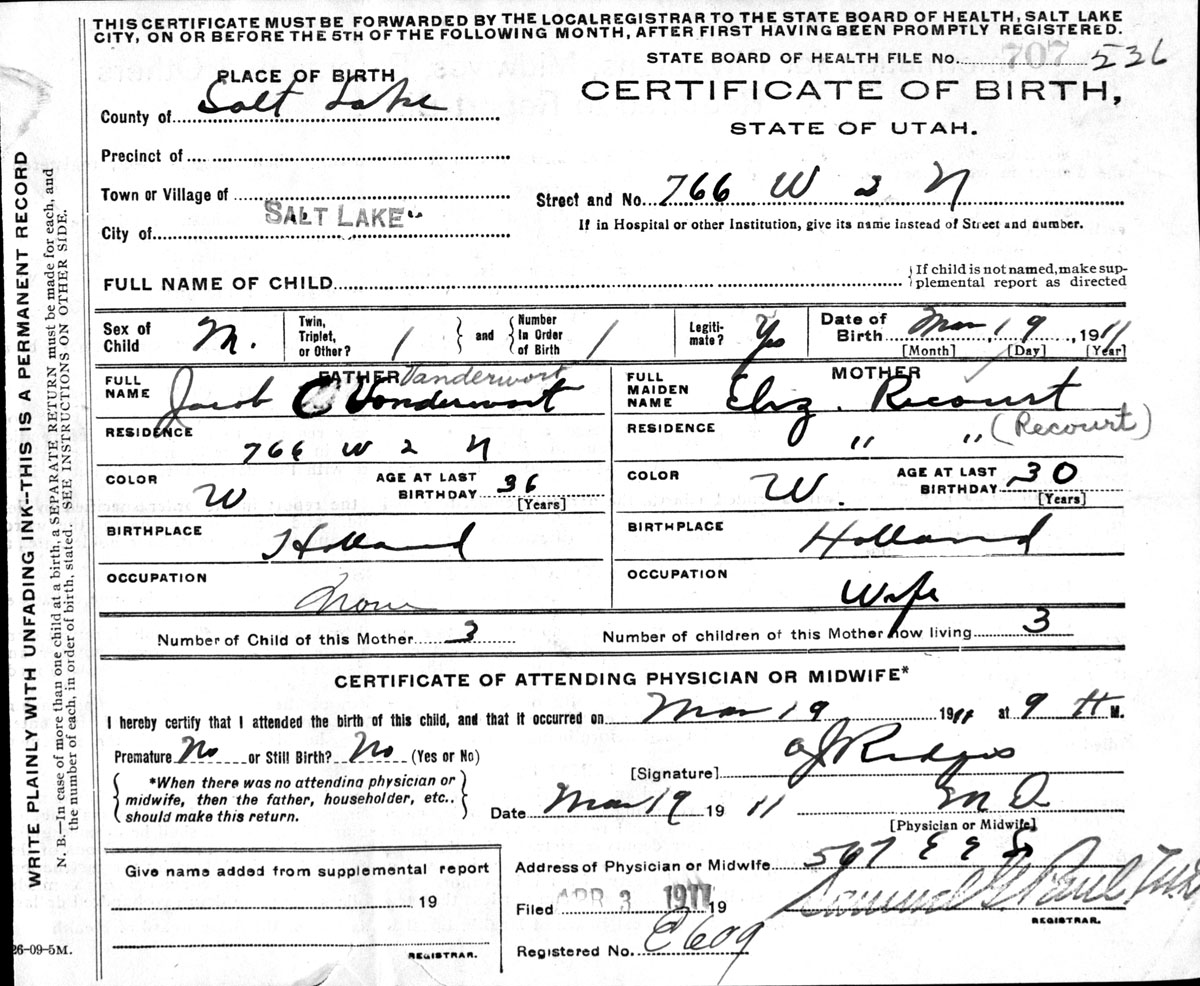 THIS CERTIFICATE MUST BE FORWARDED BY THE LOCAL REGISTRAR TO THE STATE BOARD OF HEALTH, SALT LAKE
CITY, ON OR BEFORE THE 5TH OF THE FOLLOWING MONTH, AFTER FIRST HAVING BEEN PROMPTLY REGISTERED.
STATE BOARD OF HEALTH FILE NO. 707 536
PLACE OF BIRTH
CERTIFICATE OF BIRTH,
STATE OF UTAH.
County of Salt Lake
Precinct of
Town or Village of
Street and No. 766 W 2 N
City of SALT LAKE
If in Hospital or other Institution, give its name instead of Street and number.
FULL NAME OF CHILD
If child is not named, make sup-
plemental report as directed
Sex of Child M.
Twin, Triplet, or Other? 1 and Number In Order of Birth 1
Legiti-mate? Yes
Date of Birth Mar 19 1911
[Month] [Day] [Year]
FATHER Vanderwort
FULL NAME Jacob C Vonderwort
RESIDENCE 766 W 2 N
COLOR W AGE AT LAST BIRTHDAY 36
[Years]
BIRTHPLACE Holland
OCCUPATION None
MOTHER
FULL MAIDEN NAME Eliz. Recourt
RESIDENCE " " (Recourt)
COLOR W. AGE AT LAST BIRTHDAY 30
[Years]
BIRTHPLACE Holland
OCCUPATION Wife
Number of Child of this Mother 3 Number of children of this Mother now living 3
CERTIFICATE OF ATTENDING PHYSICIAN OR MIDWIFE*
I hereby certify that I attended the birth of this child, and that it occurred on Mar 19 1911 at 9 M.
Premature No or Still Birth? No (Yes or No)
*When there was no attending physician or
midwife, then the father, householder, etc.,
should make this return.
[Signature]
Date Mar 19 1911 M D
[Physician or Midwife]
Give name added from supplemental report
19
REGISTRAR.
Address of Physician or Midwife 567 E
Filed APR 3 1911 19 Samuel G Paul
REGISTRAR.
Registered No. E609
26-09-5M.
WRITE PLAINLY WITH UNFADING INK--THIS IS A PERMANENT RECORD
N. B.—In case of more than one child at a birth a SEPARATE RETURN must be made for each, and
the number of each, in order of birth, stated. SEE INSTRUCTIONS ON OTHER SIDE.